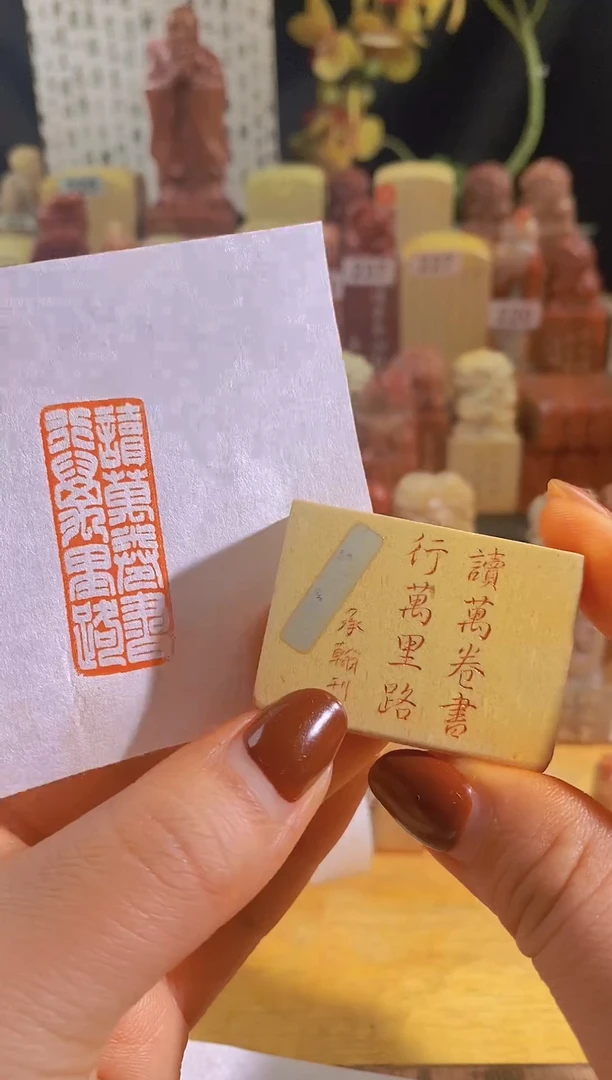 讀萬卷書
行萬里路
讀萬卷書
行萬里路
承翰刊